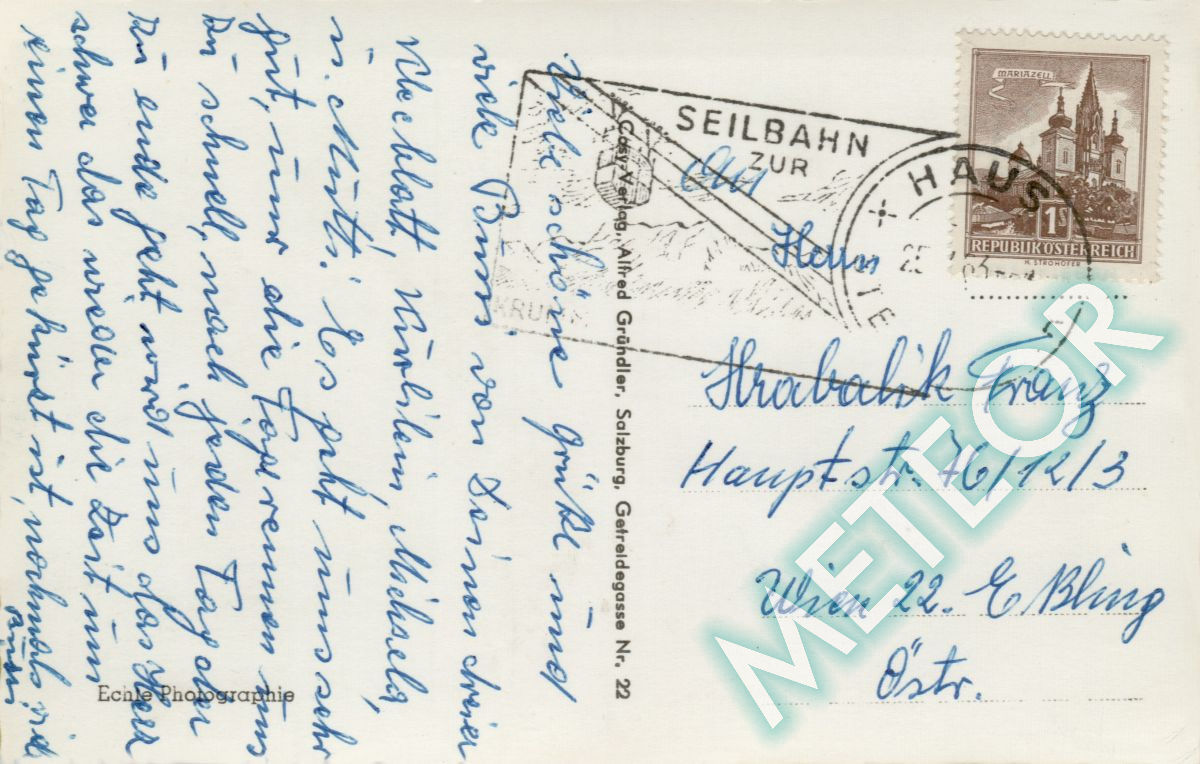 Liebe schöne Grüße und
viele Bussi von Deinen dreier
Kleeblatt, Kurtilein, Michaela,
u. Mutti. Es geht uns sehr
gut, nur die Tage rennen uns
zu schnell, nach jeden Tag der
zu ende geht wird uns das Herz
schwer das wieder die Zeit um
einen Tag gekürzt ist, nochmals viele
Bussi
Echte Photographie
Cosy-Verlag, Alfred Gründler, Salzburg, Getreidegasse Nr. 22
SEILBAHN
ZUR
HAUS
MARIAZELL
1S
REPUBLIK ÖSTERREICH
H. STROHOFER
An
Herrn
Hrabalik Franz
Hauptstr. 76/12/3
Wien 22. Eßling
Östr.
METEOR